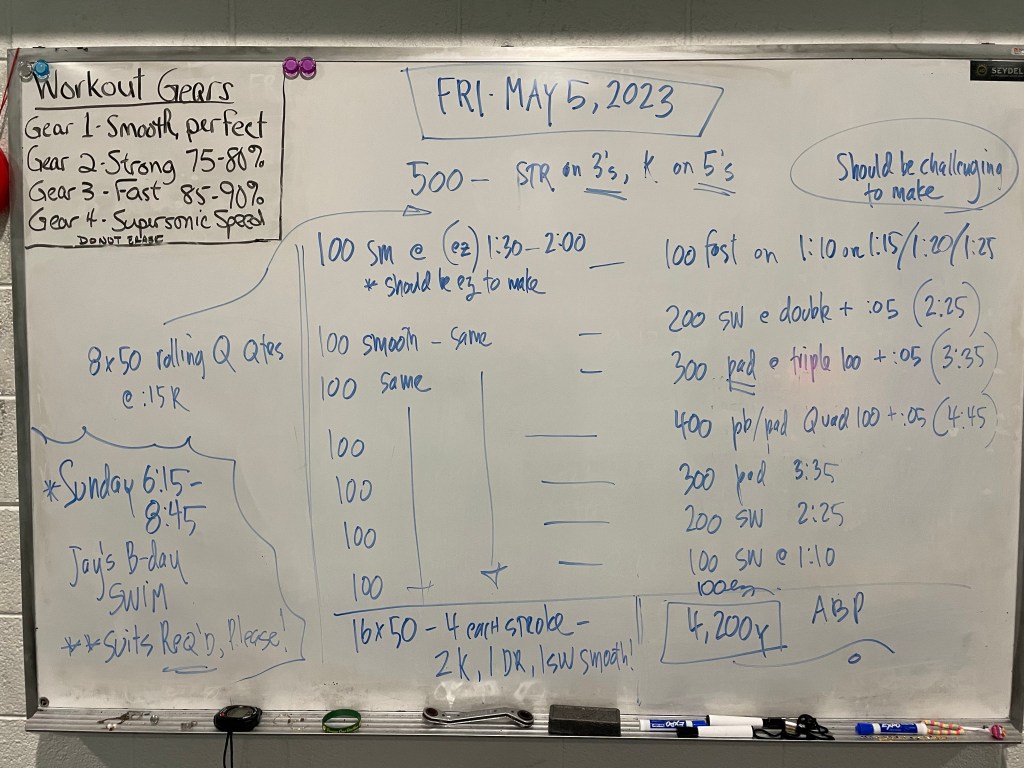 Workout Gears
Gear 1 - Smooth, perfect
Gear 2 - Strong 75-80%
Gear 3 - Fast 85-90%
Gear 4 - Supersonic Speed
DO NOT ERASE
FRI. MAY 5, 2023
SEYDEL
500 - STR on 3's, K on 5's
Should be challenging
to make
100 SM @ (ez) 1:30-2:00 — 100 fast on 1:10 on 1:15/1:20/1:25
* should be ez to make
200 SW @ double + :05 (2:25)
100 smooth - same —
8x50 rolling Q Qtes
@ :15 R
100 same — 300 pad @ triple 100 + :05 (3:35)
100 — 400 pb/pad Quad 100 + :05 (4:45)
100 — 300 pad 3:35
100 — 200 SW 2:25
100 — 100 SW @ 1:10
100 ez
*Sunday 6:15-
8:45
Jay's B-day
SWIM
**Suits Req'd, Please!
16x50 - 4 each stroke -
2K, 1 DR, 1 SW smooth!
4,200y
ABP
EXPO
EXPO